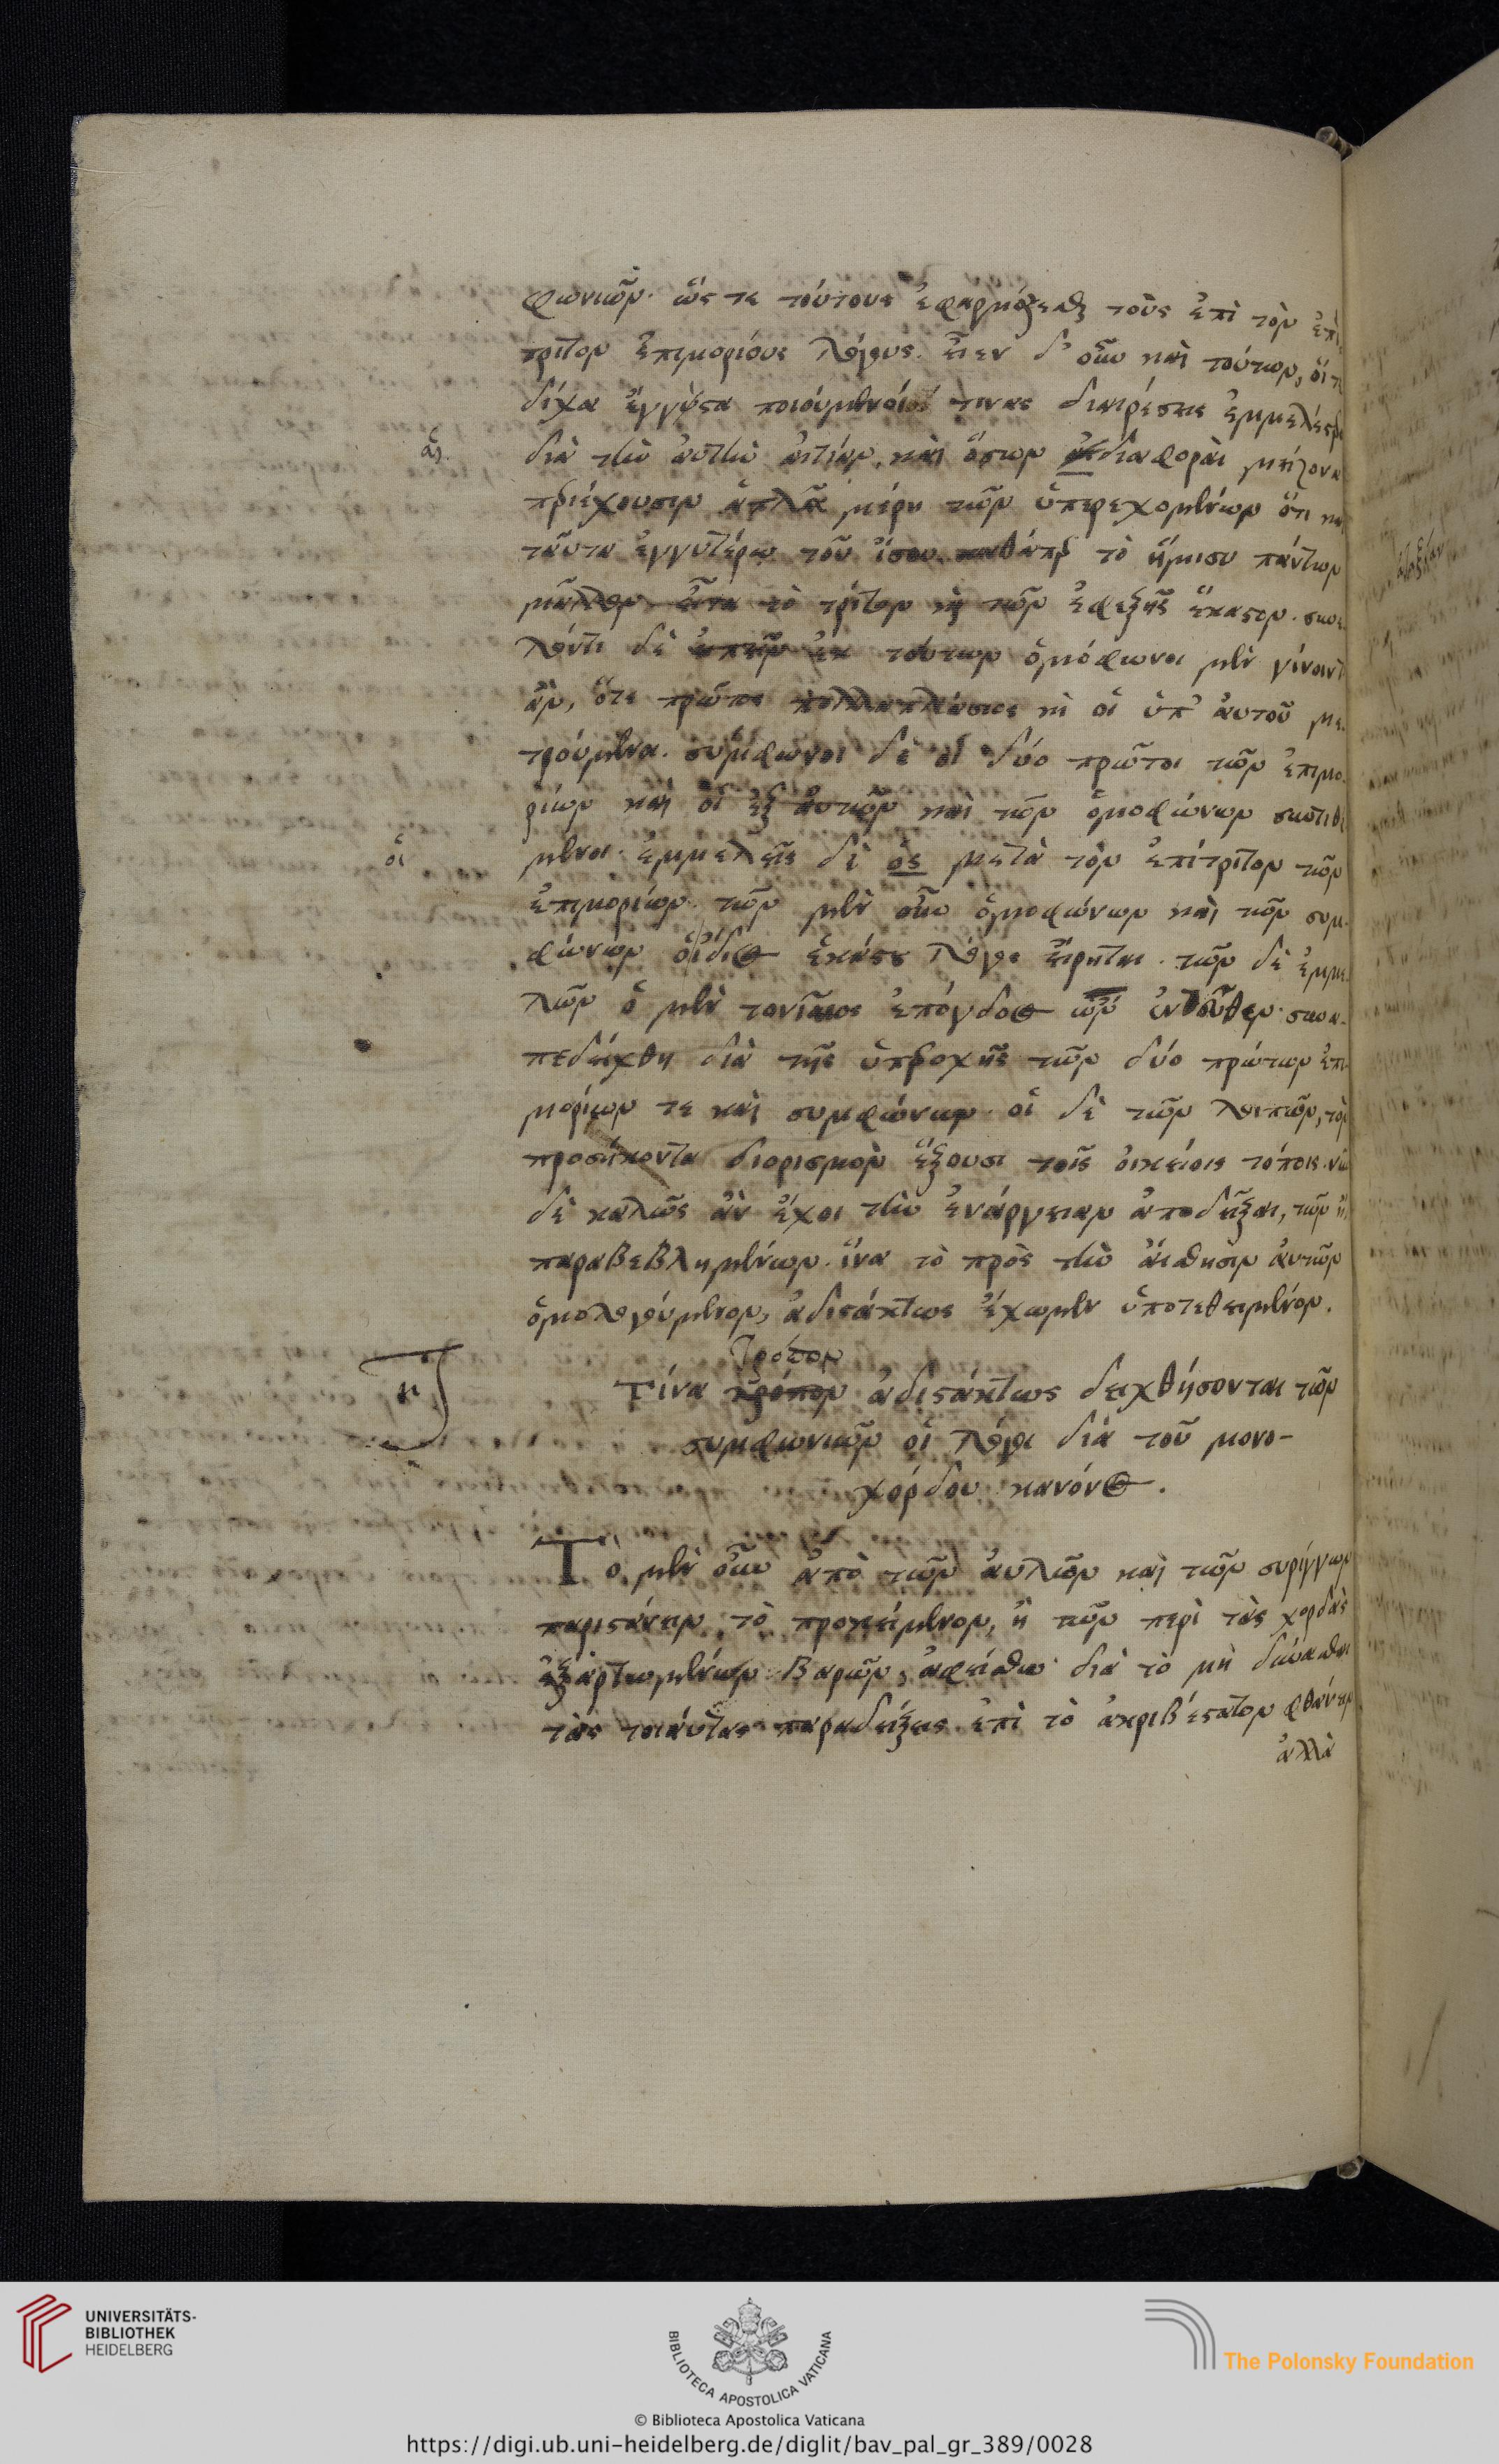 φωνιῶν. ὥς τε τούτους ἐφαρμόζεσθαι τοὺς ἐπὶ τὸν ἐπί
τριτον ἐπιμορίους λόγους. εἶεν δ' οὖν καὶ τούτων, οἵ τε
δίχα ἔγγιστα ποιούμενοί τινας διαιρέσεις ἐμμελέστεροι
αἱ
διὰ τὴν αὐτὴν αἰτίαν, καὶ ὅσων αἱ διαφοραὶ μείζονα
περιέχουσιν ἁπλᾶ μέρη τῶν ὑπερεχομένων ὅτι καὶ
ταῦτα ἐγγυτέρω τοῦ ἴσου. καθάπερ τὸ ἥμισυ πάντων
μᾶλλον, εἶτα τὸ τρίτον καὶ τῶν ἐφεξῆς ἕκαστον. συνε
λόντι δὲ εἰπεῖν ἐκ τούτων ὁμόφωνοι μὲν γίνοιντ
ἂν, ὅτε πρῶτος πολλαπλάσιος καὶ οἱ ὑπ' αὐτοῦ με
τρούμενοι. σύμφωνοι δὲ οἱ δύο πρῶτοι τῶν ἐπιμο
ρίων καὶ οἱ ἐξ αὐτῶν καὶ τῶν ὁμοφώνων συντιθέ
οἱ
μενοι. ἐμμελεῖς δὲ ὃς μετὰ τὸν ἐπίτριτον τῶν
ἐπιμορίων. τῶν μὲν οὖν ὁμοφώνων καὶ τῶν συμ-
φώνων οἴδιος ἑκάστου λόγος εἴρηται. τῶν δὲ ἐμμε
λῶν ὁ μὲν τονιαῖος ἐπόγδοος ὢν ἐντεῦθεν. συνα-
πεδείχθη διὰ τῆς ὑπεροχῆς τῶν δύο πρώτων ἐπι-
μορίων τε καὶ συμφώνων. οἱ δὲ τῶν λοιπῶν, τὸν
προσήκοντα διορισμὸν ἕξουσι τοῖς οἰκείοις τόποις. νῦν
δὲ καλῶς ἂν ἔχοι τὴν ἐνάργειαν ἀποδεῖξαι, τῶν ἤ
παραβεβλημένων. ἵνα τὸ πρὸς τὴν αἴσθησιν αὐτῶν
ὁμολογούμενον, ἀδιστάκτως ἔχωμεν ὑποτεθειμένον.
τρόπον
η Τίνα τρόπον ἀδιστάκτως δειχθήσονται τῶν
συμφωνιῶν οἱ λόγοι διὰ τοῦ μονο-
χόρδου κανόνος.
Τὸ μὲν οὖν ἀπὸ τῶν αὐλῶν καὶ τῶν συρίγγων
παριστάνειν τὸ προκείμενον, ἢ τῶν περὶ τὰς χορδὰς
ἐξαρτωμένων βαρῶν, ἀφείσθω διὰ τὸ μὴ δύνασθαι
τὰς τοιαύτας παραδείξεις ἐπὶ τὸ ἀκριβέστατον φθάνειν
ἀλλὰ
UNIVERSITÄTS-
BIBLIOTHEK
HEIDELBERG
BIBLIOTECA APOSTOLICA VATICANA
The Polonsky Foundation
© Biblioteca Apostolica Vaticana
https://digi.ub.uni-heidelberg.de/diglit/bav_pal_gr_389/0028